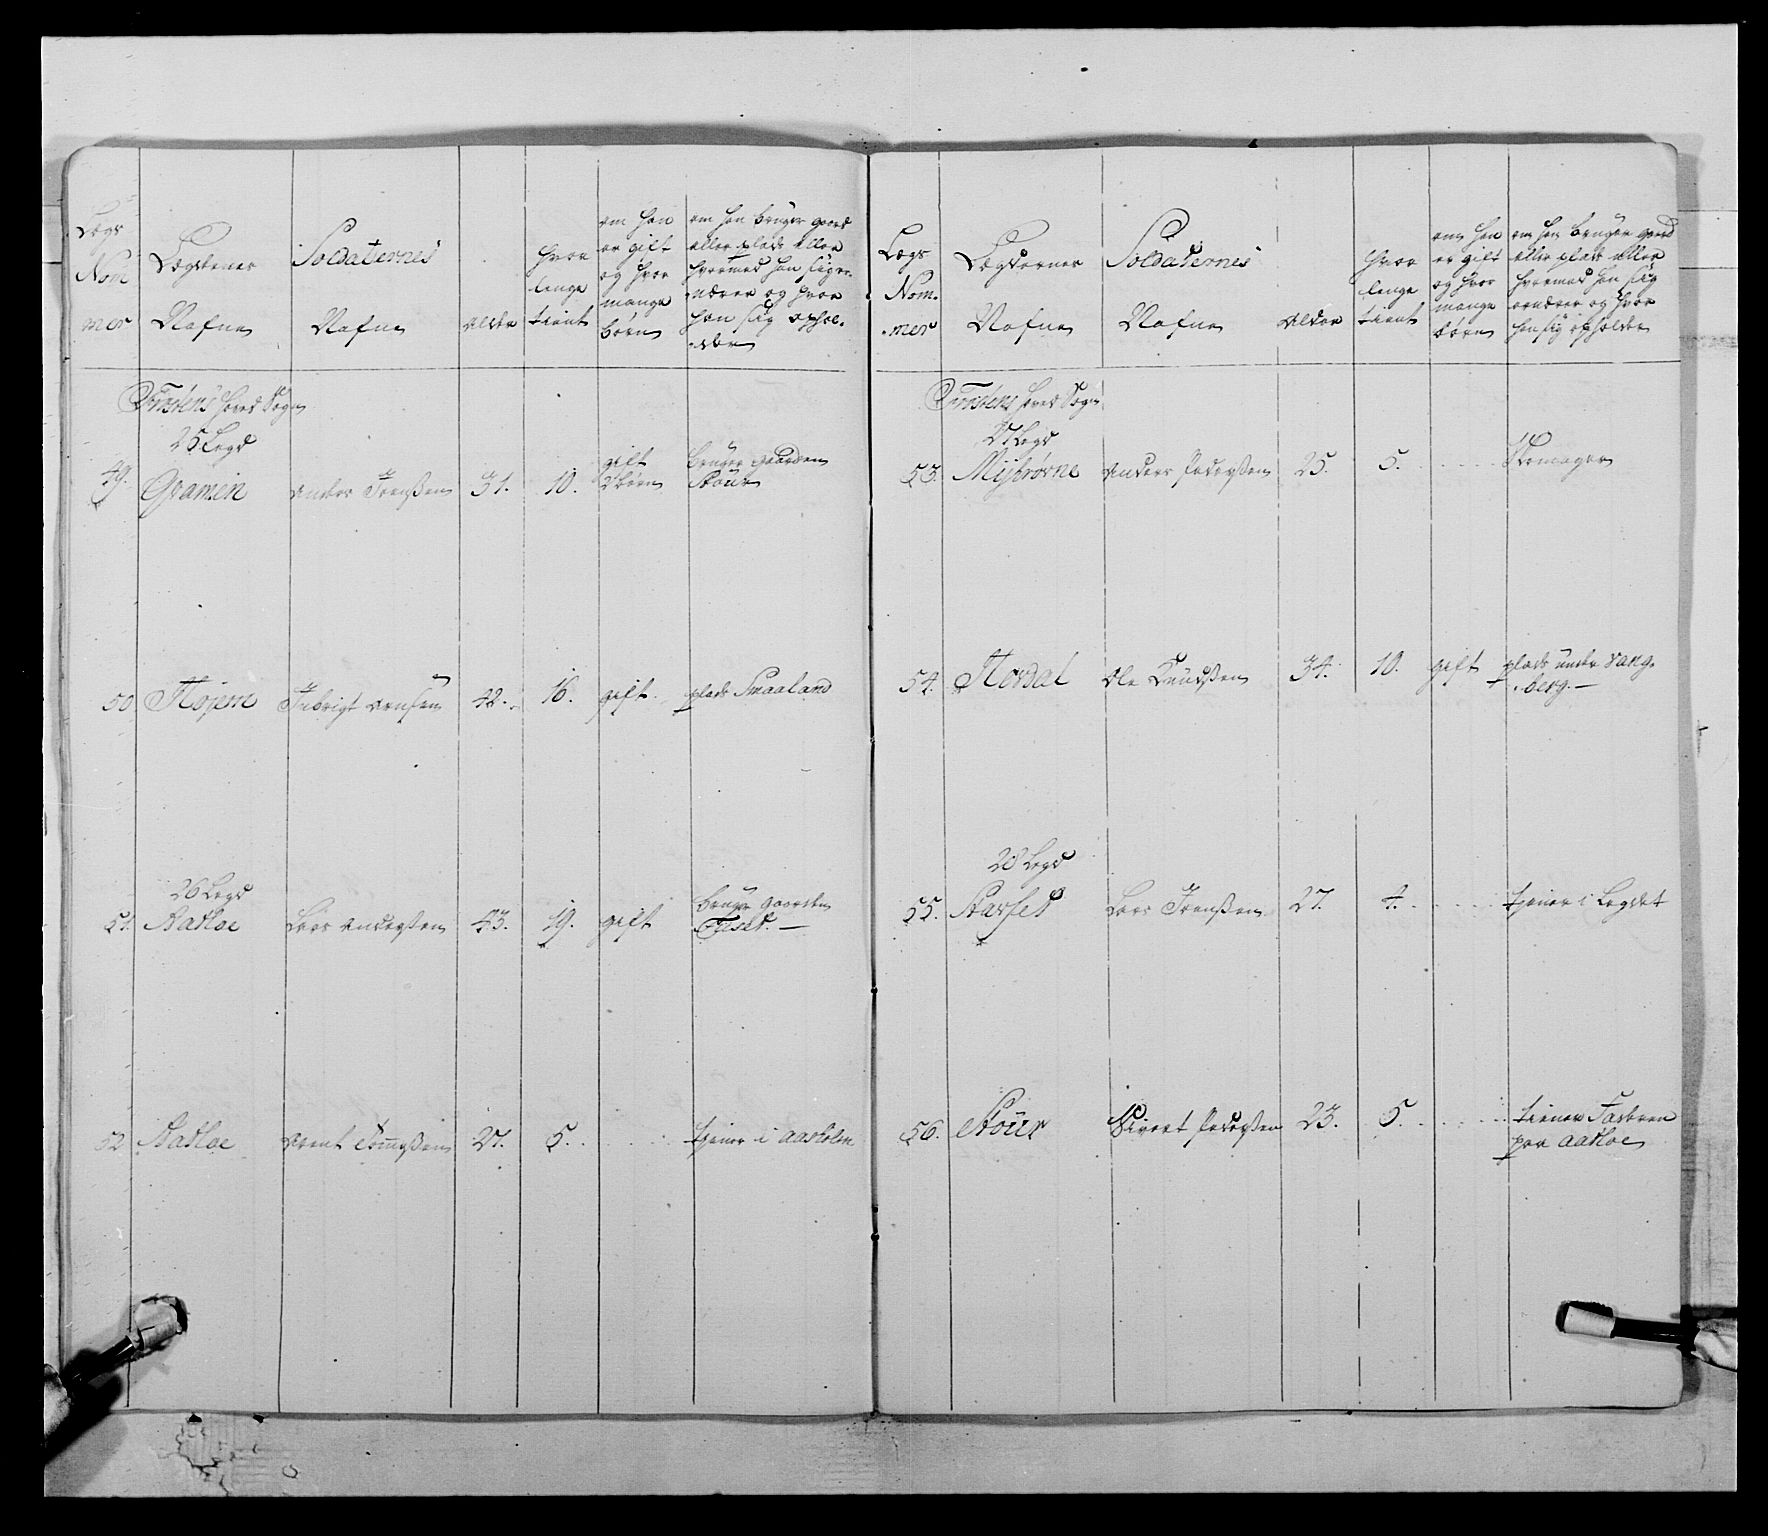 Legs
Nom
mer
Legdenes
Nafne
Soldatternes
Nafne
alder
hvor
lenge
tient
om han
er gift
og hvor
mange
børn
om han bruger gaard
eller plads eller
hvormed han sig er-
nærer og hvor
han sig ophol-
der
Frostens hoved Sogn
25 Legd
49. Gramen Anders Jenssen 31. 10. gift 2 børn bruger gaarden
Stour
50 Højem Arnsen 42. 16. gift. plads Smaaland
26 Legd
51. Aatloe Lars Anderssen 43. 19. gift bruger gaarden
52 Aatloe Arent 27. 5. tjener i Aasholen
Legs
Nom.
mer
Legdernes
Nafne
Soldaternes
Nafne
alder
hvor
lenge
tient
om han
er gift
og hvor
mange
børn
om han bruger gaard
eller plads eller
hvormed han sig
ernærer og hvor
han sig opholder
Frostens hoved Sogn
27 Legd
53. Anders Pederssen 25. 5. Skomager
54. Nordal Ole Knudssen 34. 10. gift plads under Vang-
berg.
28 Legd
55. Aarset Lars Jenssen 27. 4. tjener i Legdet
56. Stour Sivert Pederssen 23. 5. tiener
paa Aatloe